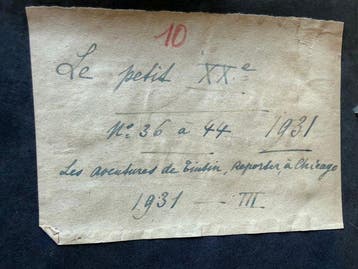 10
Le petit XXe
N° 36 à 44 1931
Les aventures de Tintin, Reporter à Chicago
1931 — III